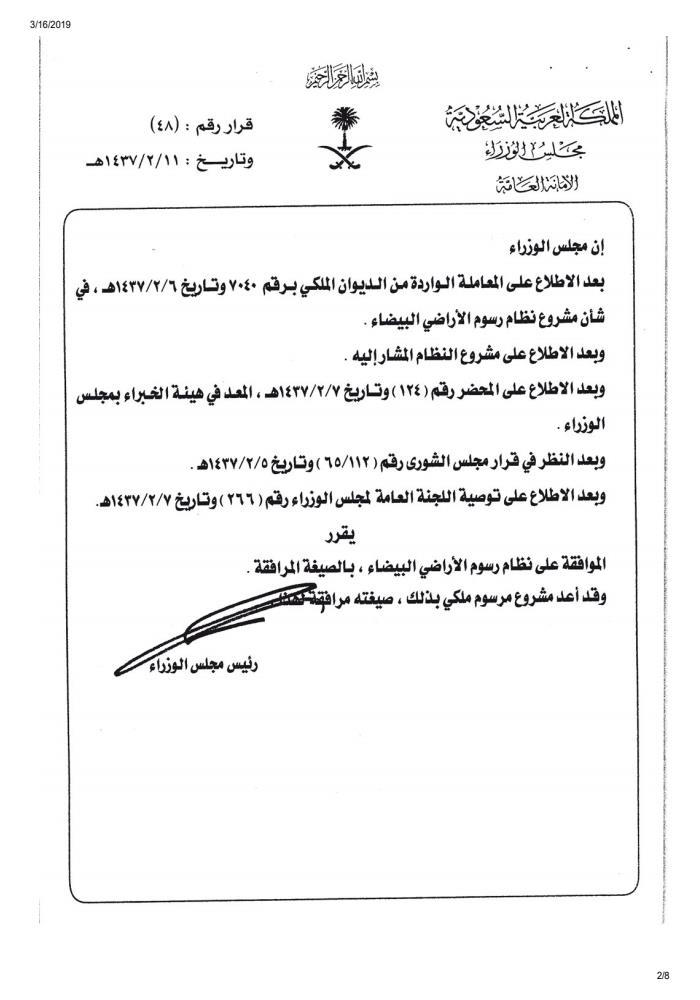 3/16/2019
بسم الله الرحمن الرحيم
المملكة العربية السعودية
مجلس الوزراء
الأمانة العامة
قرار رقم : (٤٨)
وتاريخ : ١٤٣٧/٢/١١هـ
إن مجلس الوزراء
بعد الاطلاع على المعاملة الواردة من الديوان الملكي برقم ٧٠٤٠ وتاريخ ١٤٣٧/٢/٦هـ ، في
شأن مشروع نظام رسوم الأراضي البيضاء .
وبعد الاطلاع على مشروع النظام المشار إليه .
وبعد الاطلاع على المحضر رقم (١٢٤) وتاريخ ١٤٣٧/٢/٧هـ ، المعد في هيئة الخبراء بمجلس
الوزراء .
وبعد النظر في قرار مجلس الشورى رقم (٦٥/١١٢) وتاريخ ١٤٣٧/٢/٥هـ .
وبعد الاطلاع على توصية اللجنة العامة لمجلس الوزراء رقم (٢٦٦) وتاريخ ١٤٣٧/٢/٧هـ.
يقرر
الموافقة على نظام رسوم الأراضي البيضاء ، بالصيغة المرافقة .
وقد أعد مشروع مرسوم ملكي بذلك ، صيغته مرافقة لهذا .
رئيس مجلس الوزراء
2/8